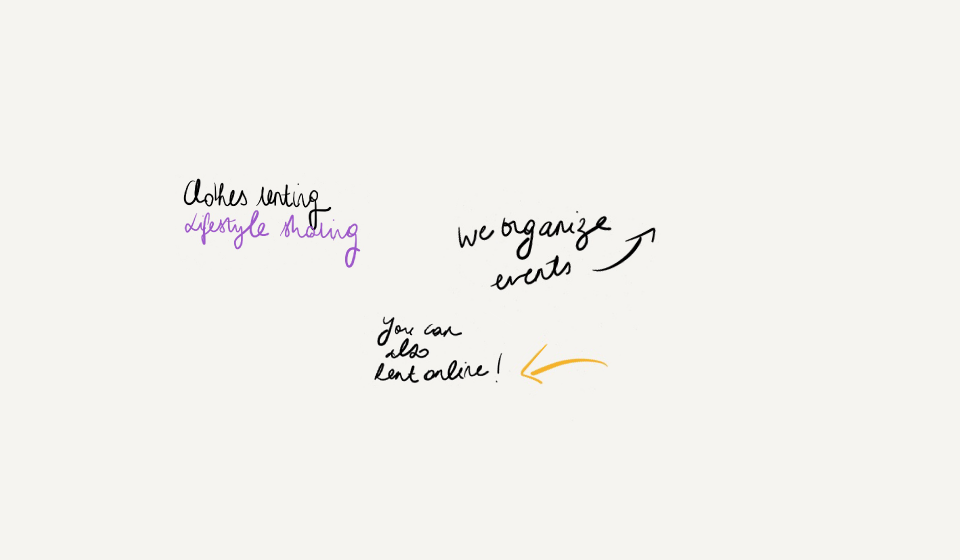 Clothes renting
Lifestyle sharing
We organize
events
You can
also
Rent online!